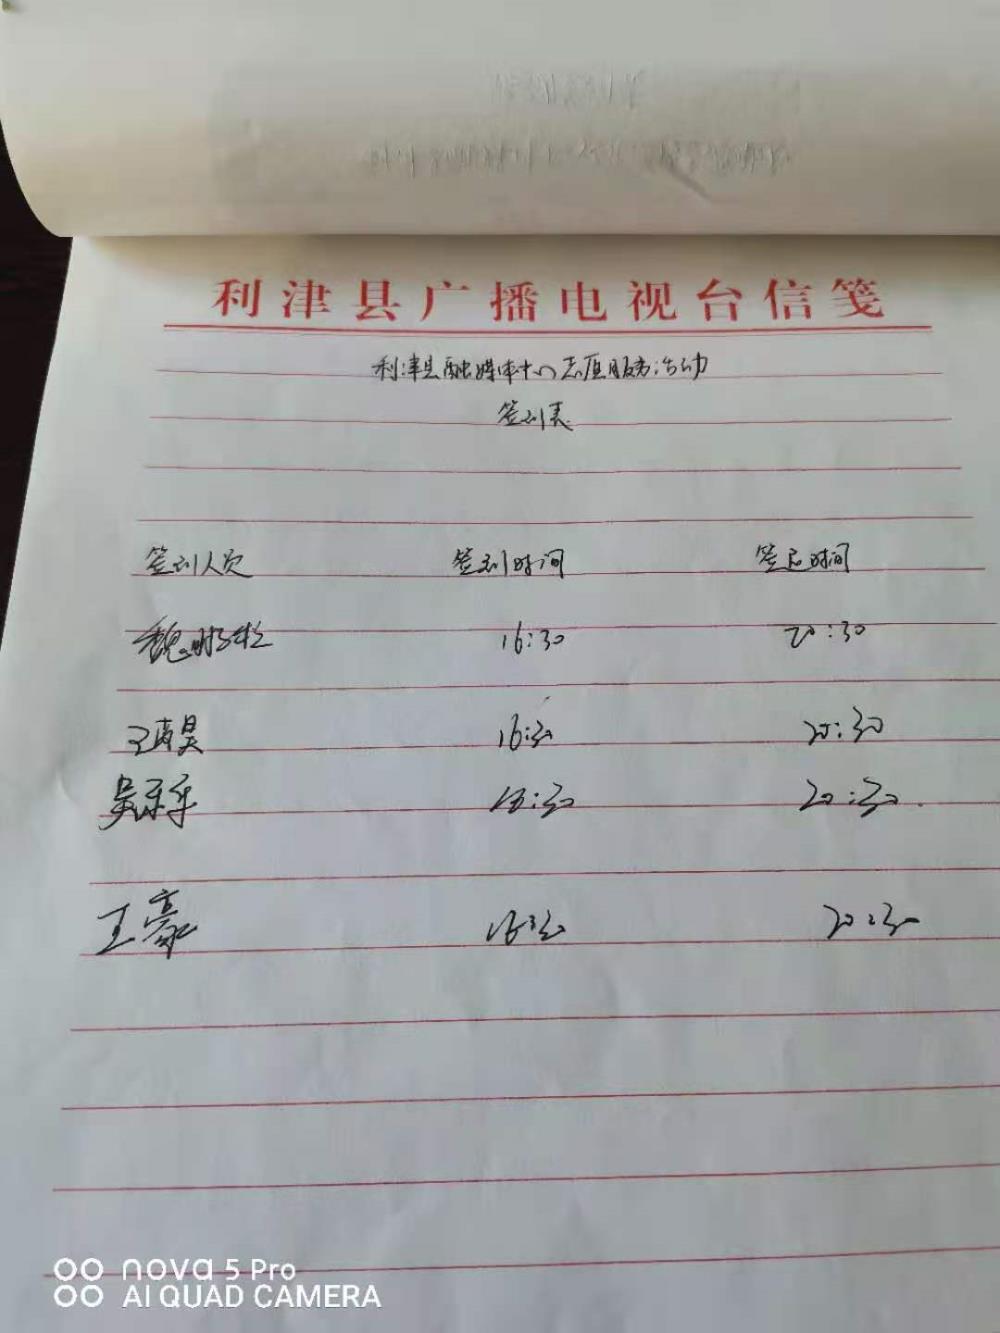 利津县广播电视台信笺
利津县融媒体中心志愿服务活动
签到表
签到人员 签到时间 签退时间
魏 16:30 20:30
王 昊 16:30 20:30
吴 :30 20:30
王豪 16:30 20:30
nova 5 Pro
AI QUAD CAMERA